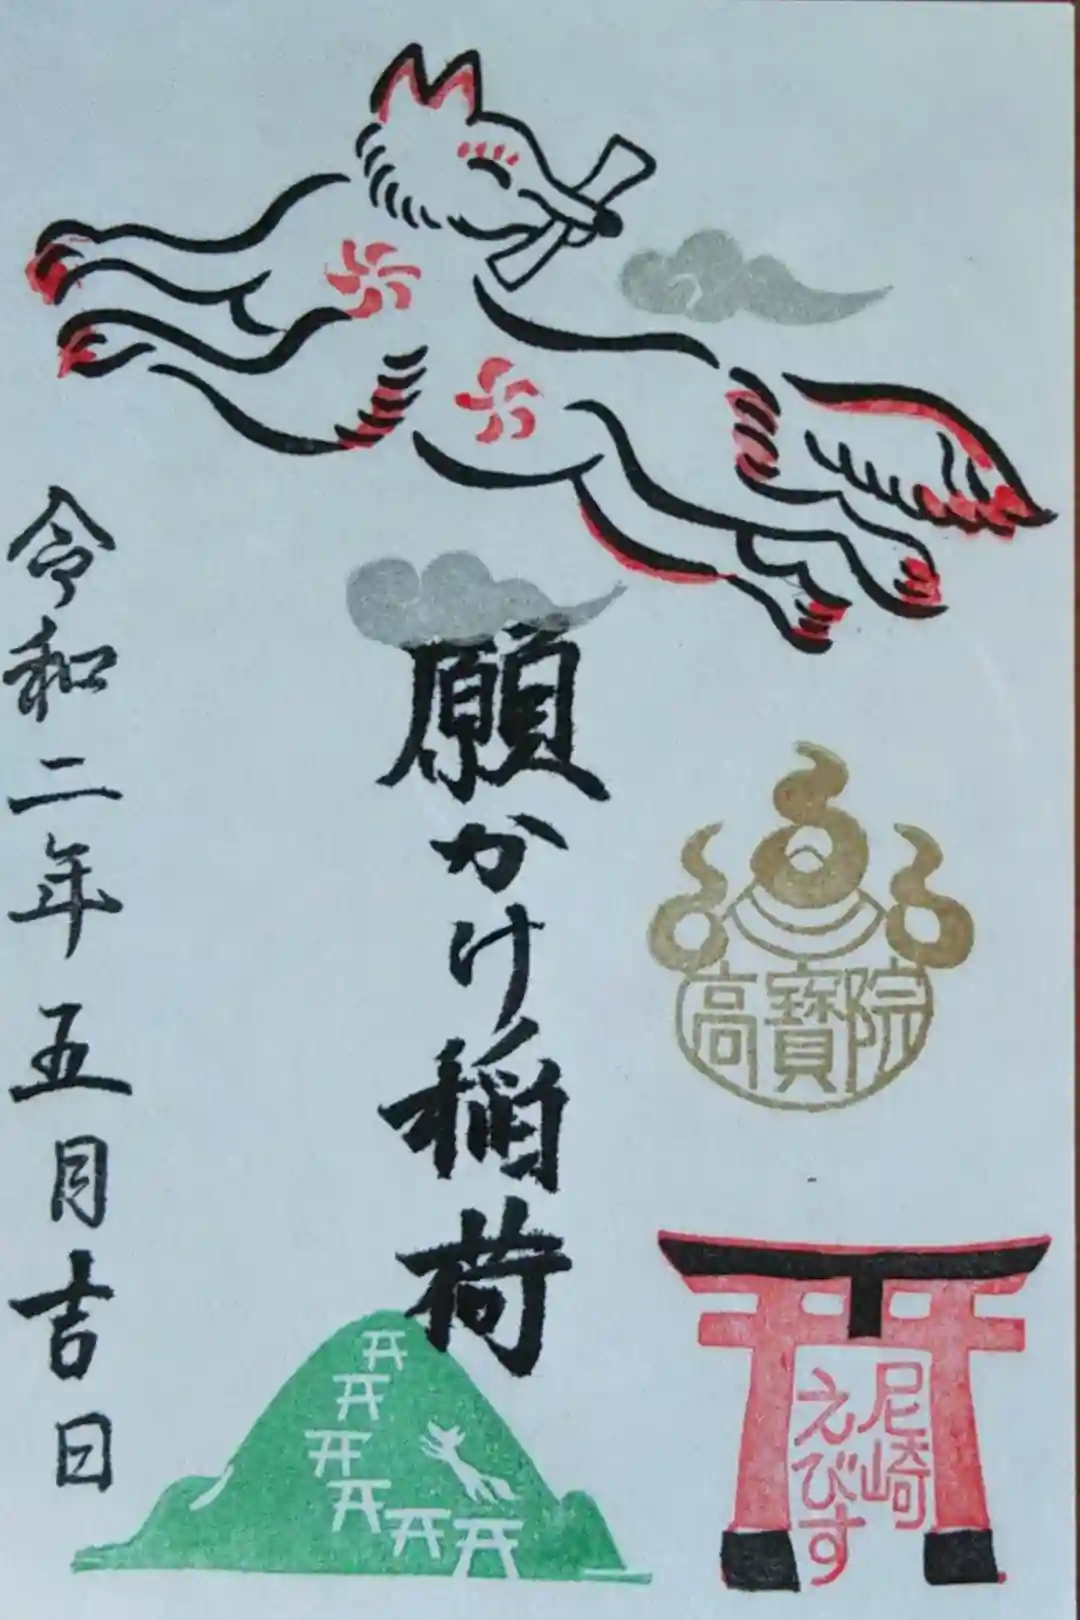 高寶院
尼崎
えびす
願かけ稲荷
令和二年五月吉日